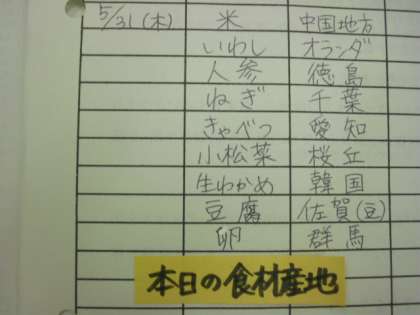 5/31(木) 米 中国地方
いわし オランダ
人参 徳島
ねぎ 千葉
きゃべつ 愛知
小松菜 桜丘
生わかめ 韓国
豆腐 佐賀(豆)
卵 群馬
本日の食材産地